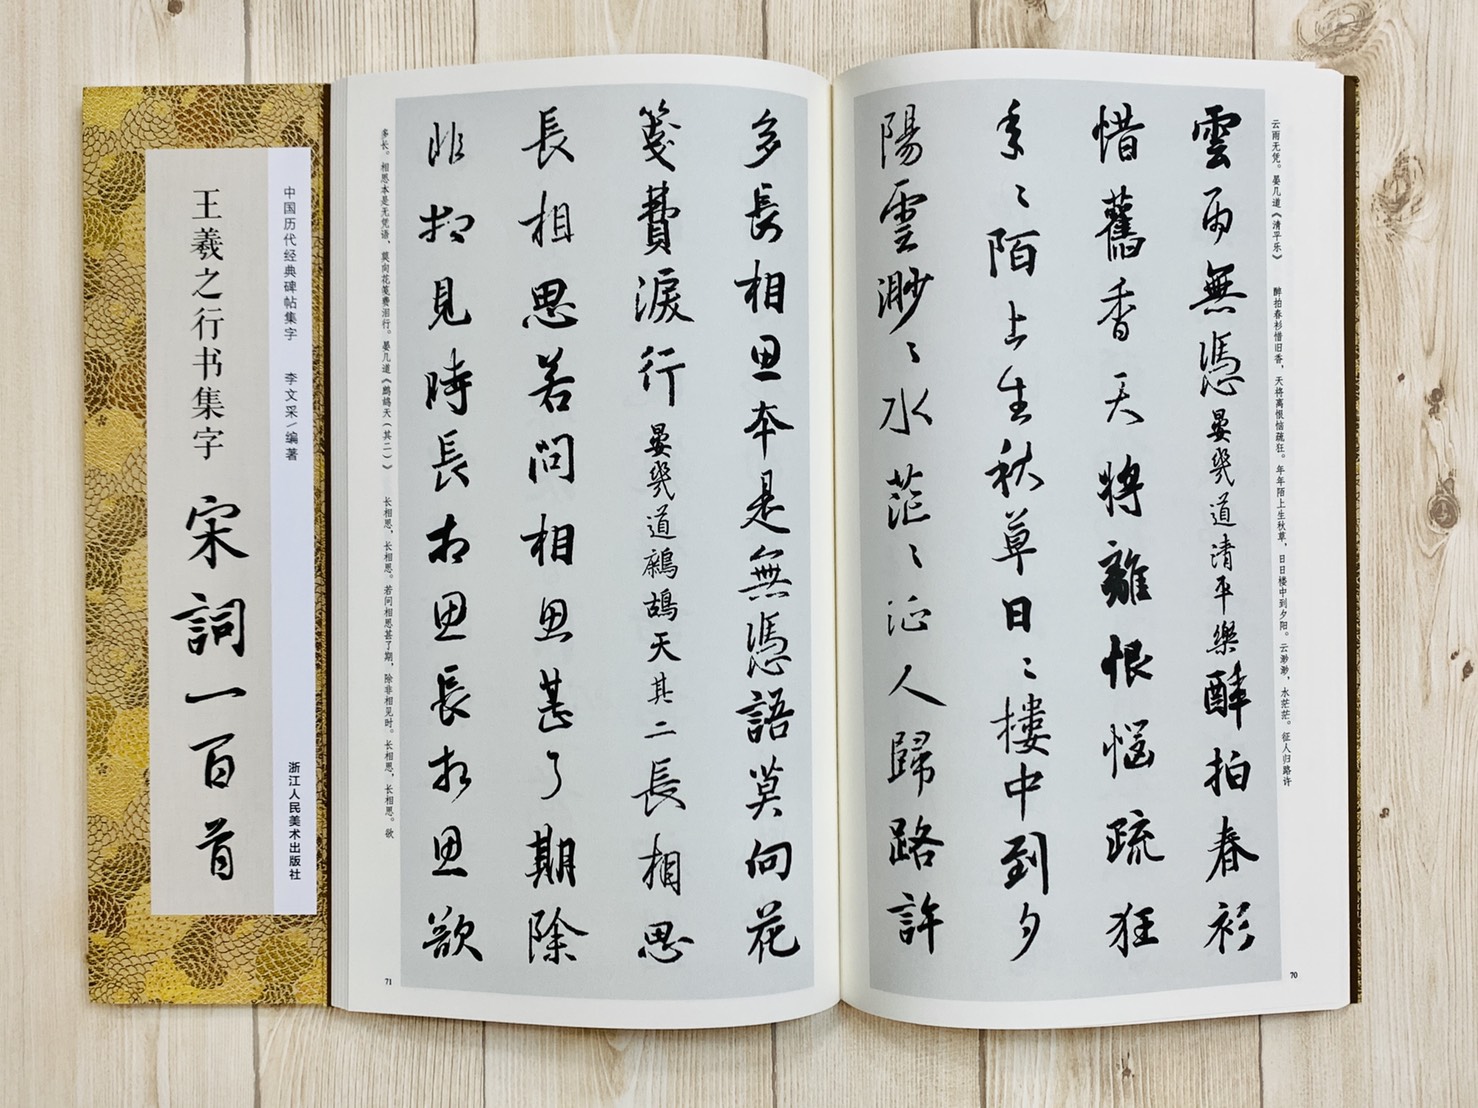 中国历代经典碑帖集字 李文采/编著 浙江人民美术出版社
王羲之行书集字 宋詞一百首
云雨无凭。晏几道《清平乐》 醉拍春衫惜旧香，天将离恨恼疏狂。年年陌上生秋草，日日楼中到夕阳。云渺渺，水茫茫。征人归路许
雲雨無憑晏幾道清平樂醉拍春衫
惜舊香天將離恨惱疏狂
年〻陌上生秋草日〻樓中到夕
陽雲渺〻水茫〻征人歸路許
70
多長相思本是無憑語莫向花
箋費淚行晏幾道鷓鴣天其二長相思
長相思若問相思甚了期除
非相見時長相思長相思欲
多长。相思本是无凭语，莫向花笺费泪行。晏几道《鹧鸪天（其二）》 长相思，长相思。若问相思甚了期，除非相见时。长相思，长相思。欲
71